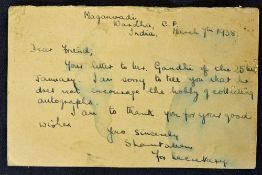 Maganvadi,
Wardha, C.P.
India. March 7th 1938.
Dear Friend,
Your letter to Mr. Gandhi of the 25th
January. I am sorry to tell you that he
does not encourage the hobby of collecting
autographs.
I am to thank you for your good
wishes
Yrs sincerely
for Secretary